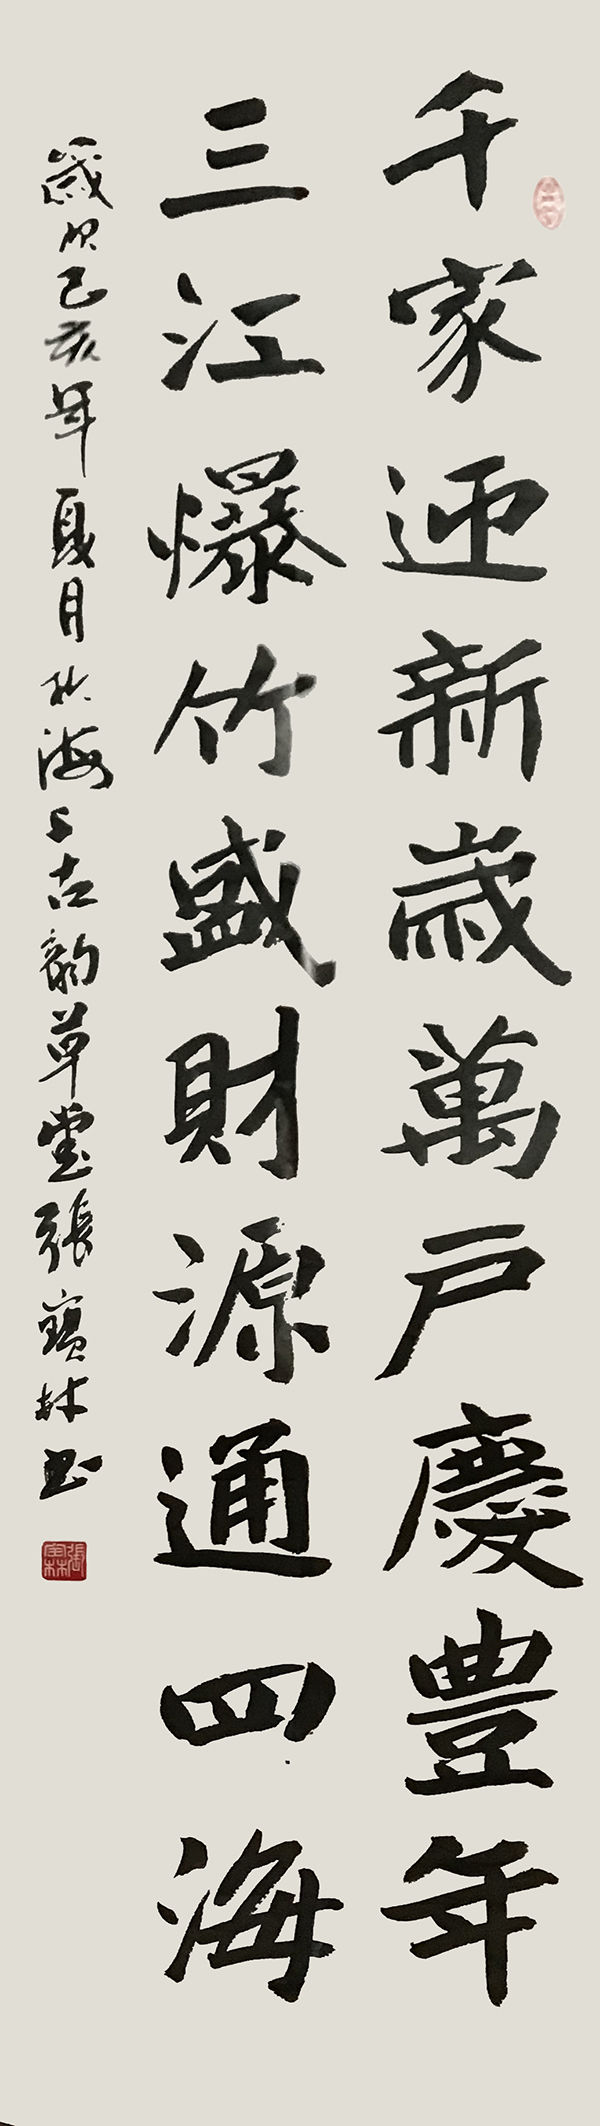 千家迎新歲萬戶慶豊年
三江爆竹盛財源通四海
歲次己亥年夏月於海上古韵草堂張寶林書